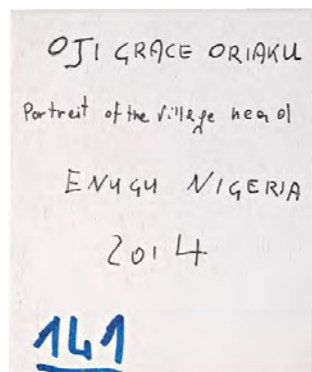 OJI GRACE ORIAKU
Portrait of the village head
ENUGU NIGERIA
2014
141